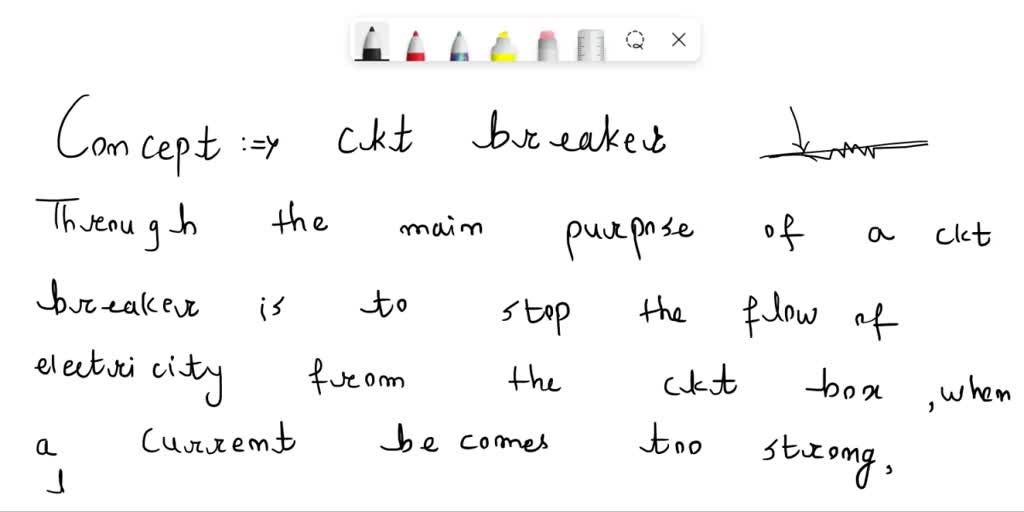 Concept :⇒ ckt breaker
Through the main purpose of a ckt
breaker is to stop the flow of
electricity from the ckt box, when
a current becomes too strong,